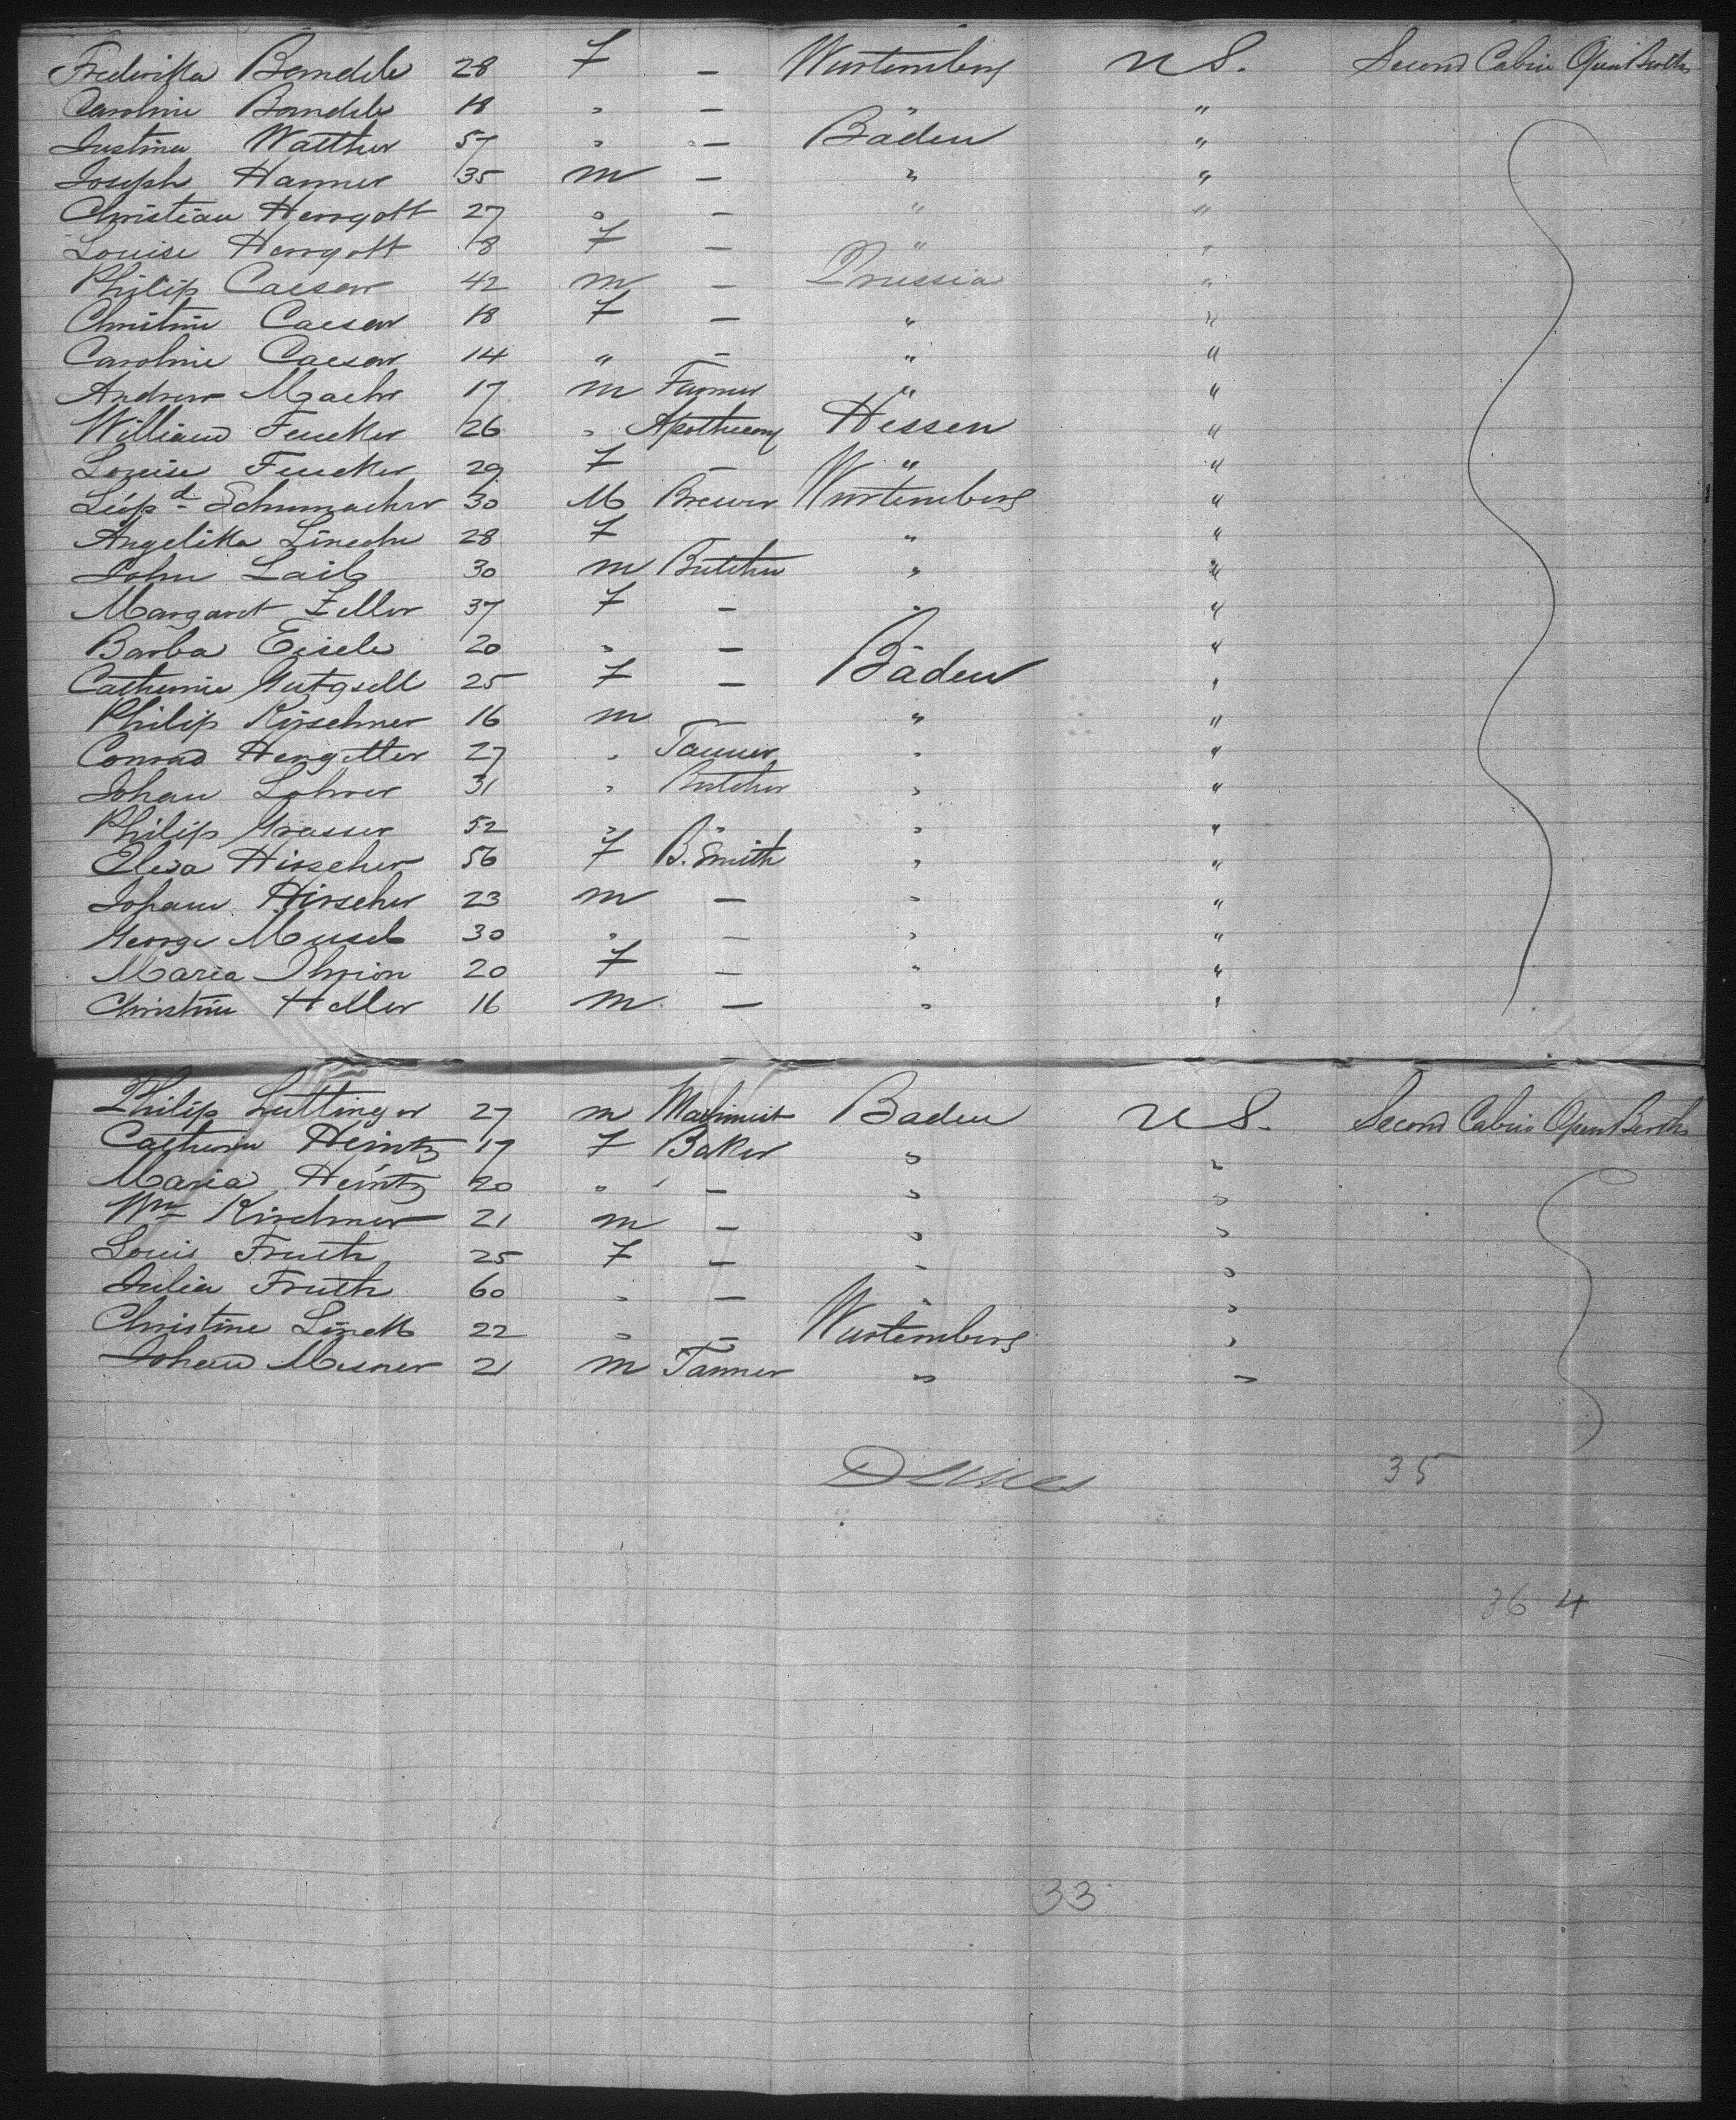 Frederika Bamdele 28 F — Wurtemberg U S. Second Cabin Open Berths
Caroline Bamdele 18 " — " "
Justina Walther 57 " — Baden "
Joseph Hanner 35 m — " "
Christian Herrgott 27 " — " "
Louise Herrgott 18 F — " "
Philip Caesar 42 m — Prussia "
Christine Caesar 18 F — " "
Caroline Caesar 14 " — " "
Andrew Maehr 17 m Farmer " "
William Feucker 26 " Apothecary Hessen "
Louise Feucker 29 F — " "
Leopd Schumacher 30 M Brewer Wurtemberg "
Angelika 28 F " "
John Laib 30 m Butcher " "
Margaret Zeller 37 F — " "
Barba Eisele 20 " — "
Catherine Gutgsell 25 F — Baden "
Philip Kirschner 16 m — " "
Conrad Hengstler 27 " Tanner " "
Johan Lohrer 31 " Butcher " "
Philip Grasser 52 " " " "
Elisa Hirscher 56 F B. Smith " "
Johann Hirscher 23 m — " "
George Musel 30 " — " "
Maria 20 F — " "
Christine Heller 16 m — " "
Philip Luttinger 27 m Machinist Baden U S. Second Cabin Open Berths
Catherine Heintz 17 F Baker " "
Maria Heintz 20 " — " "
Wm Kirschner 21 m — " "
Louis Fruth 25 F — " "
Julia Fruth 60 " — " "
Christine Linck 22 " — Wurtemberg "
Johann Mesner 21 m Tanner " "
35
36 4
33